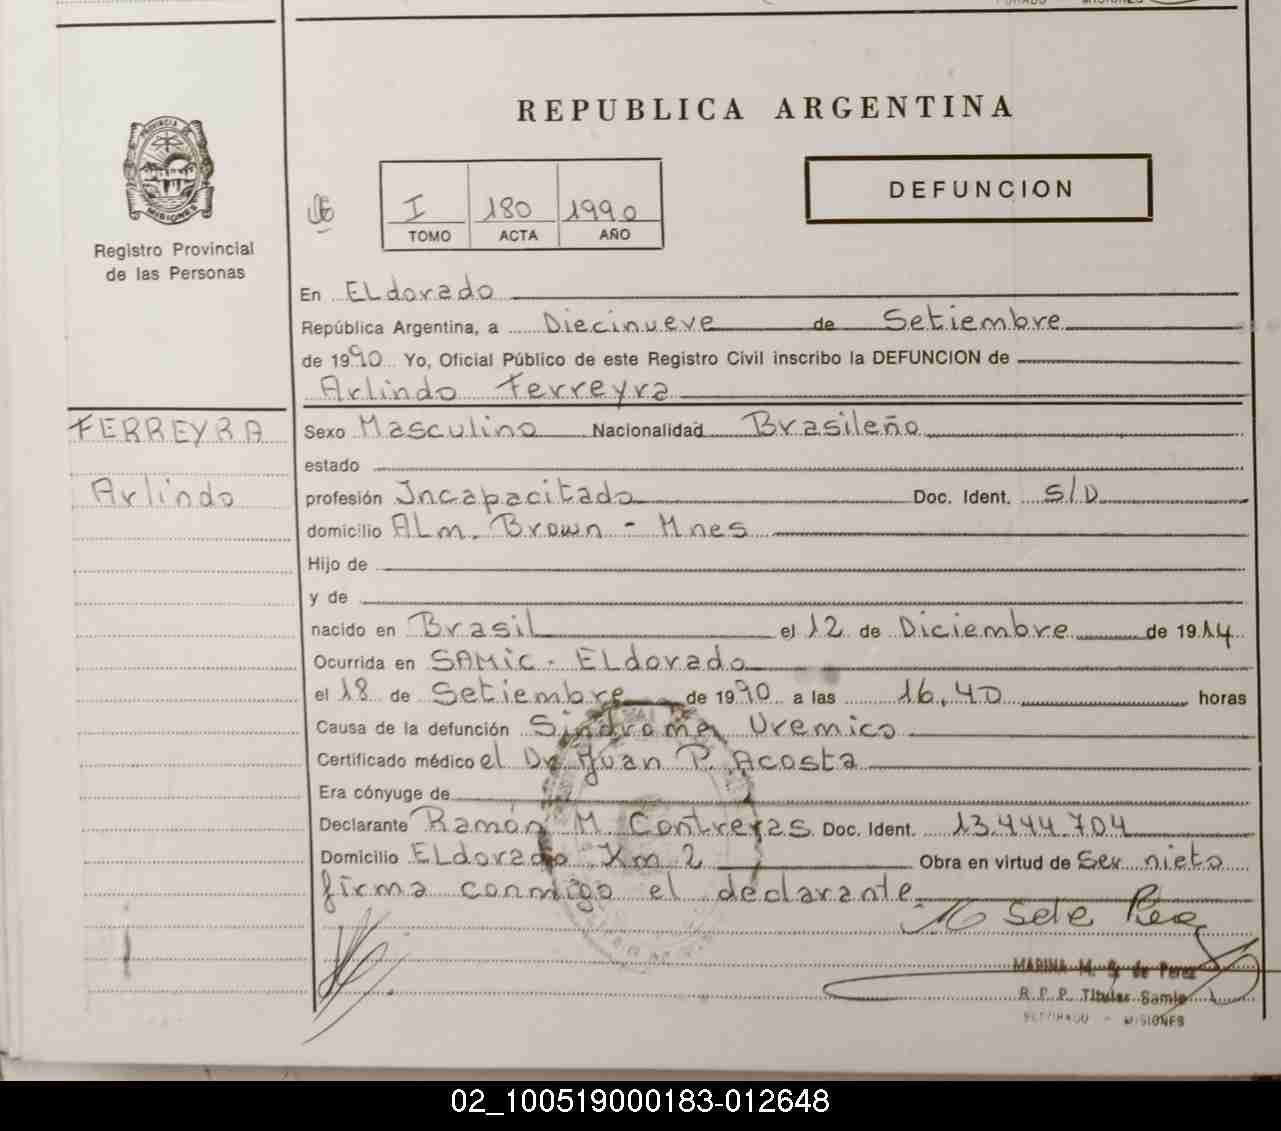 REPUBLICA ARGENTINA
PROVINCIA DE
MISIONES
Registro Provincial
de las Personas
I 180 1990
TOMO ACTA AÑO
DEFUNCION
En ELdorado
República Argentina, a Diecinueve de Setiembre
de 1990 Yo, Oficial Público de este Registro Civil inscribo la DEFUNCION de
Arlindo Ferreyra
FERREYRA
Arlindo
Sexo Masculino Nacionalidad Brasileño
estado
profesión Incapacitado Doc. Ident. S/D
domicilio ALm. Brown - Mnes
Hijo de
y de
nacido en Brasil el 12 de Diciembre de 1914
Ocurrida en SAMIC - ELdorado
el 18 de Setiembre de 1990 a las 16,40 horas
Causa de la defunción Sindrome Uremico
Certificado médico el Dr Juan P. Acosta
Era cónyuge de
Declarante Ramón M. Contreras Doc. Ident. 13.444.704
Domicilio ELdorado Km 2 Obra en virtud de Ser nieto
firma conmigo el declarante
MARINA M. de Perez
R.P.P. Titular Samic
ELDORADO - MISIONES
02_100519000183-012648